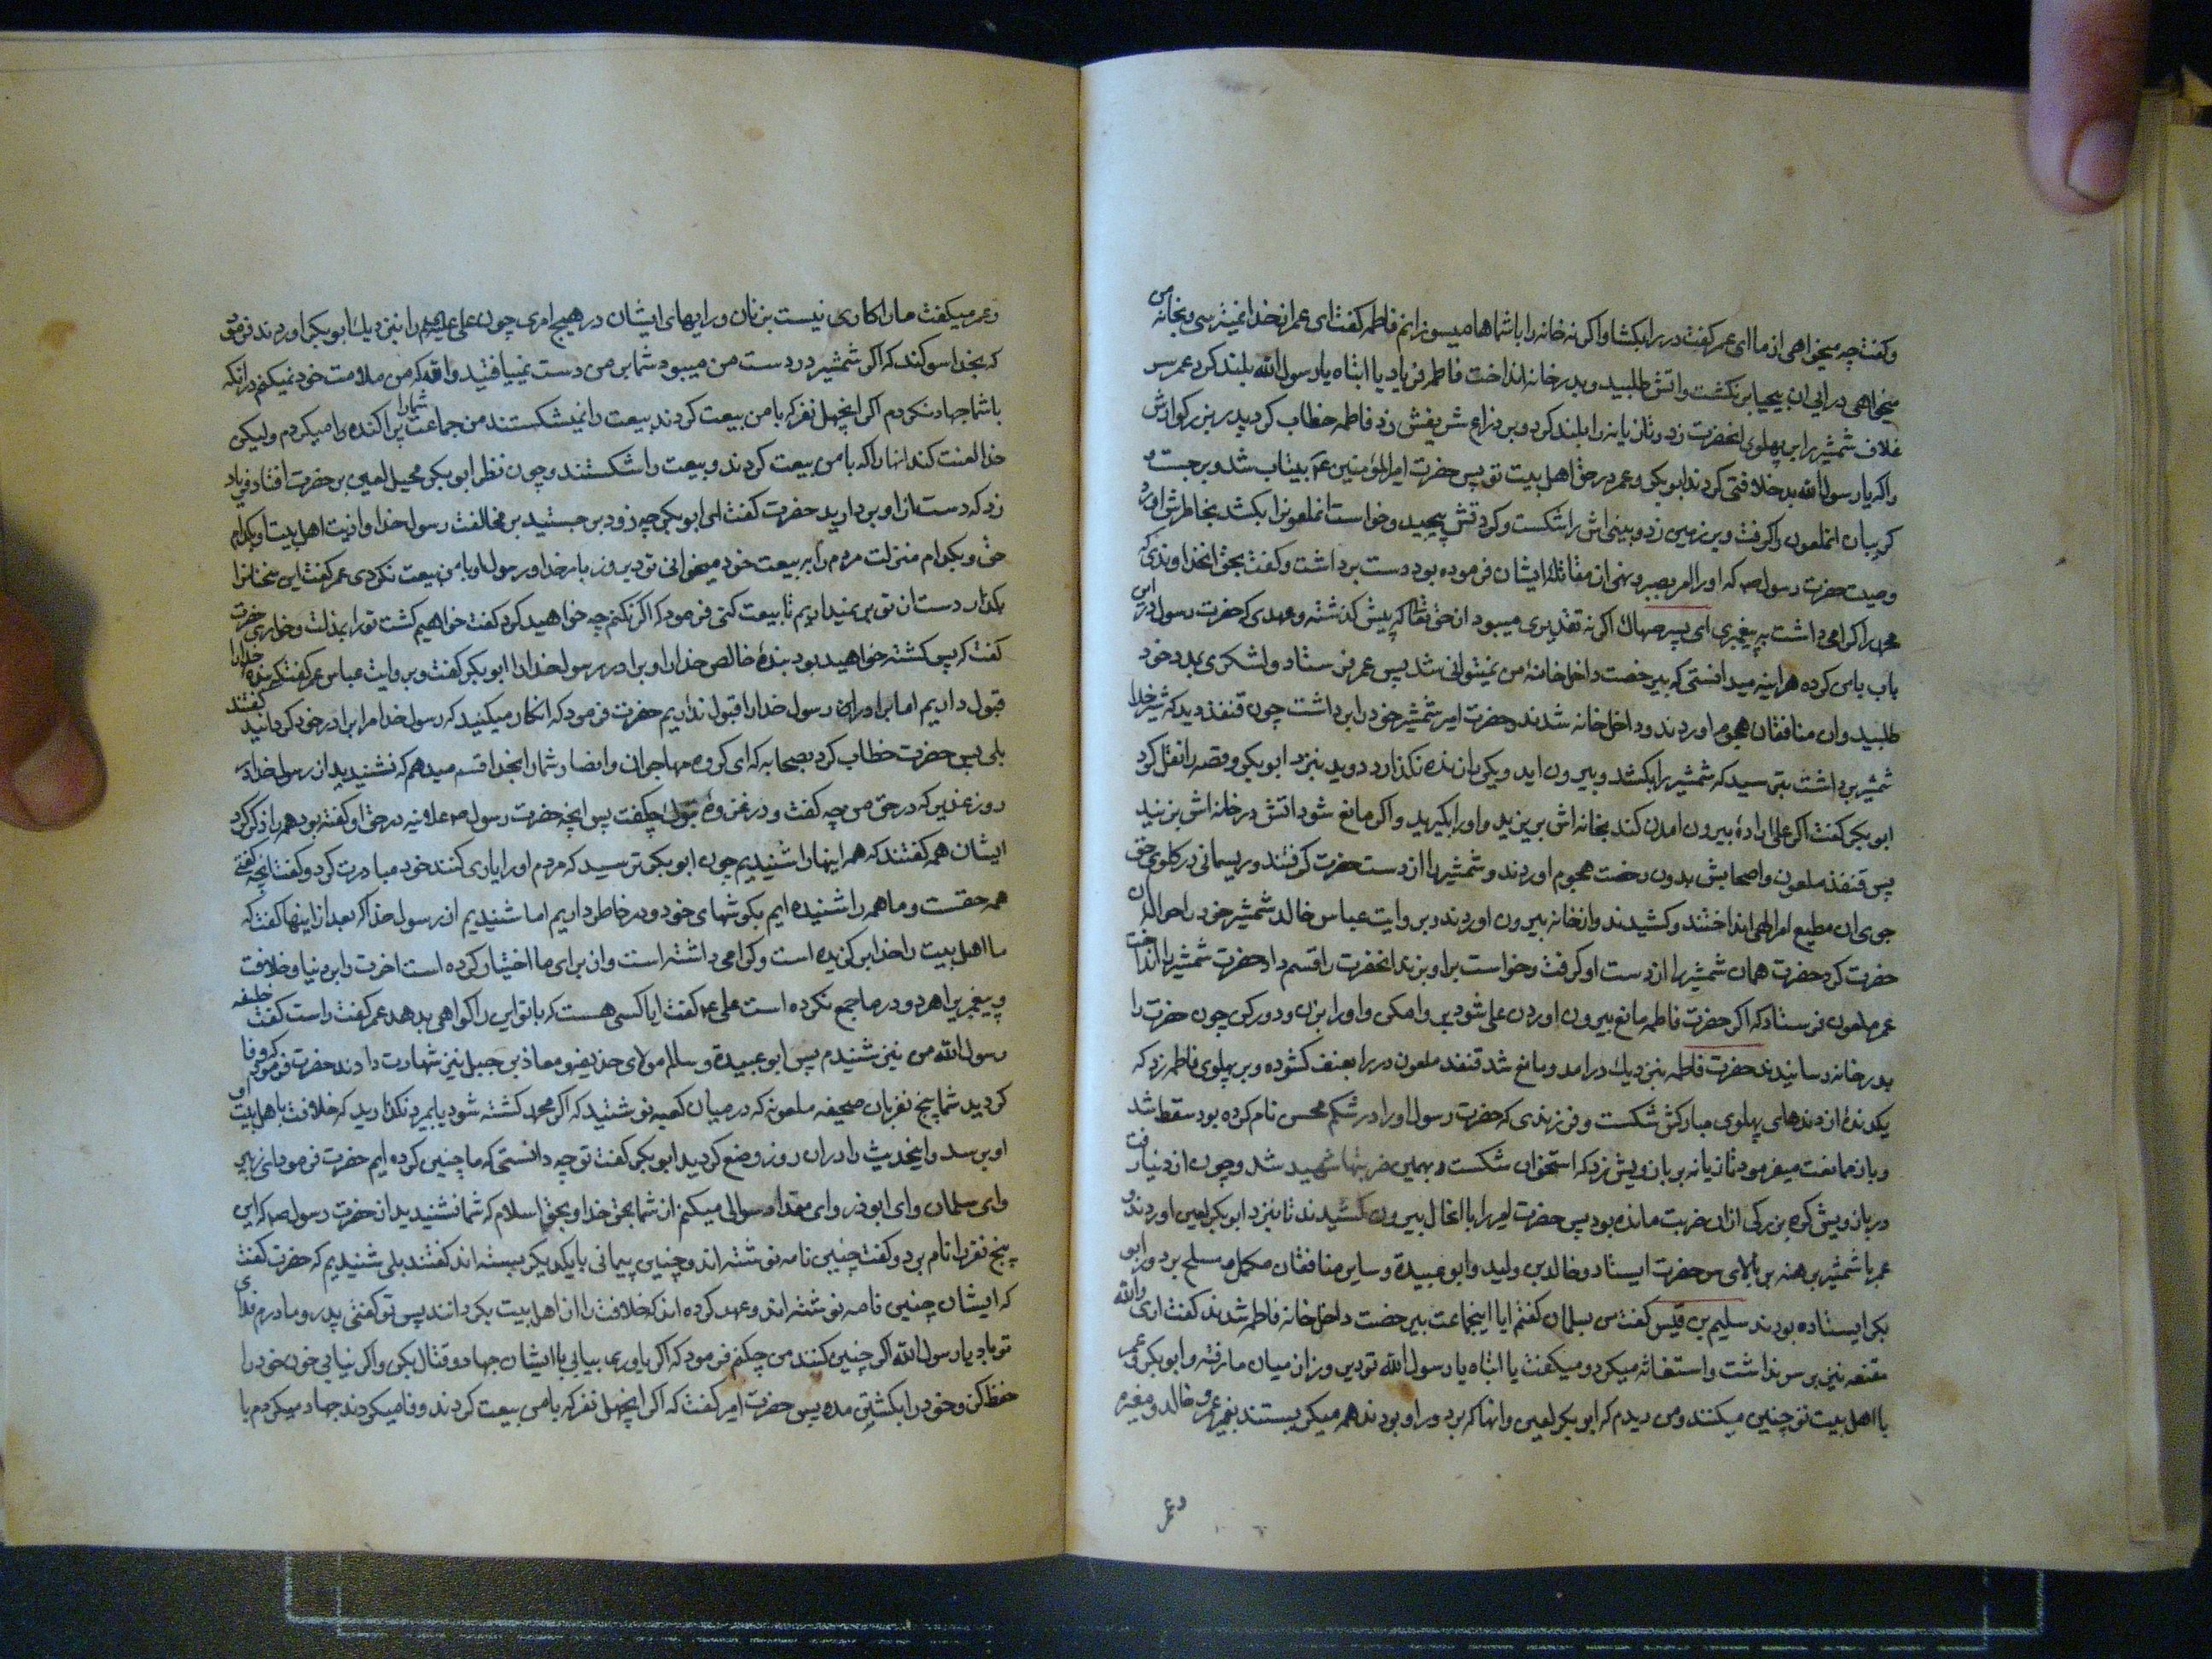 وکفت چه میخواهی از ما ای عمر کفت در را بکشا و اکر نه خانه را با شماها میسوزانم فاطمه کفت ای عمر از خدا نمیترسی و بخانه من
میخواهی درایی ان بیحیا برنکشت واتش طلبید و بدر خانه انداخت فاطمه فریاد یا ابتاه یا رسول الله بلند کرد عمر سر
غلاف شمشیر را بر پهلوی انحضرت زد و تازیانه را بلند کرد و بر ذراع شریفش زد فاطمه خطاب کرد پدر بزرکوارش
را که یا رسول الله بد خلافتی کردند ابوبکر و عمر در حق اهل بیت تو پس حضرت امیرالمؤمنین ع بیتاب شد و برجست و
کریبان انملعون را کرفت و بر زمین زد و بینی اش را شکست و کردنش پیچید و خواست انملعونرا بکشد بخاطرش اورد
وصیت حضرت رسول ص که او را امر بصبر و نهی از مقاتلهٔ ایشان فرموده بود دست برداشت و کفت بحق انخداوندی که
محمد را کرامی داشت به پیغمبری ای پسر صهاک اکر نه تقدیری میبود از حق تعالی که پیش کذشته و عهدی که حضرت رسول در این
باب با من کرده هراینه میدانستی که بیرخصت داخل خانهٔ من نمیتوانی شد پس عمر فرستاد و لشکری بمدد خود
طلبید وان منافقان هجوم اوردند و داخل خانه شدند و حضرت امیر شمشیر خود را برداشت چون قنفذ دید که شیر خدا
شمشیر برداشت بترسید که شمشیر را بکشد و بیرون اید و یکی را زنده نکذارد دوید بنزد ابوبکر و قصه را نقل کرد
ابوبکر کفت اکر علی ارادهٔ بیرون امدن کند بخانه اش بریزید و او را بکیرید و اکر مانع شود اتش در خانه اش بزنید
پس قنفذ ملعون و اصحابش بدون رخصت هجوم اوردند و شمشیر را از دست حضرت کرفتند و ریسمانی در کلوی حق
جوی ان مطیع امر الهی انداختند و کشیدند و از خانه بیرون اوردند و بروایت عباس خالد شمشیر خود را حوالهٔ ان
حضرت کرد حضرت همان شمشیر را از دست او کرفت و خواست بر او بزند انحضرت را قسم داد حضرت شمشیر را انداخت
عمر ملعون فرستاد که اکر حضرت فاطمه مانع بیرون اوردن علی شود پروا مکن و او را بزن و دور کن چون حضرت را
بدر خانه رسانیدند حضرت فاطمه بنزدیك در امد و مانع شد قنفد ملعون در را بعنف کشوده و بر پهلوی فاطمه زد که
یکدندهٔ از دندهای پهلوی مبارکش شکست و فرزندی که حضرت رسول او را در شکم محسن نام کرده بود سقط شد
و باز ممانعت میفرمود تازیانه بر بازویش زد که استخوان شکست و بهمین ضربتها شهید شد و چون از دنیا رفت
در بازویش کره بزرکی از ان ضربت مانده بود پس حضرت امیر را با انحال بیرون کشیدند تا بنزد ابوبکر لعین اوردند و
عمر با شمشیر برهنه بر بالای سر حضرت ایستاد و خالد بن ولید و ابو عبیدة و سایر منافقان مکمل و مسلح بر دور ابو
بکر ایستاده بودند سلیم بن قیس کفت من بسلمان کفتم ایا اینجماعت بیرخصت داخل خانه فاطمه شدند کفت اری والله
مقنعه نیز بر سر نداشت و استغاثه میکرد و میکفت یا ابتاه یا رسول الله تو دیروز از میان ما رفته و ابوبکر و عمر
با اهل بیت تو چنین میکنند و من دیدم که ابوبکر لعین و انها که بر دور او بودند همه میکریستند بغیر عمر و خالد و مغیره
وعمر
وعمر میکفت ما را کاری نیست بزنان و رایهای ایشان در هیچ امری چون علی علیه السلام را بنزدیك ابوبکر اوردند فرمود
که بخدا سوکند که اکر شمشیر در دست من میبود شما بر من دست نمییافتید والله که من ملامت خود نمیکنم در انکه
با شما جهاد نکردم اکر انچهل نفر که با من بیعت کردند بیعت را نمیشکستند من جماعت شما را پراکنده میکردم ولیکن
خدا لعنت کند انها را که با من بیعت کردند و بیعت را شکستند و چون نظر ابوبکر محیل لعین بر حضرت افتاد فریاد
زد که دست از او بردارید حضرت کفت ای ابوبکر چه زود برجستید بر مخالفت رسول خدا و اذیت اهل بیت او بکدام
حق و بکدام منزلت مردم را به بیعت خود میخوانی تو دیروز بامر خدا و رسول او با من بیعت نکردی عمر کفت این سخنانرا
بکذار دست از تو بر نمیداریم تا بیعت کنی فرمود که اکر نکنم چه خواهید کرد کفت خواهیم کشت تو را بذلت و خواری حضرت
کفت که پس کشته خواهید بود بندهٔ خالص خدا را و برادر رسول خدا را ابوبکر کفت و بروایت عباس عمر کفت که بندهٔ خدا را
قبول داریم اما برادری رسول خدا را قبول نداریم حضرت فرمود که انکار میکنید که رسول خدا مرا برادر خود کردانید کفتند
بلی پس حضرت خطاب کرد بصحابه که ای کروه مهاجران و انصار شما را بخدا قسم میدهم که نشنیدید از رسول خدا در
روز غدیر که در حق من چه کفت و در غزوهٔ تبوك چکفت پس انچه حضرت رسول ص علانیه در حق او کفته بود همه را ذکر کرد
ایشان همه کفتند که همه اینها را شنیدیم چون ابوبکر ترسید که مردم او را یاری کنند خود مبادرت کرد و کفت انچه کفتی
همه حقست و ما همه را شنیده ایم بکوشهای خود و در خاطر داریم اما شنیدیم از رسول خدا که بعد از اینها کفت که
ما اهل بیت را خدا برکزیده است و کرامی داشته است و از برای ما اختیار کرده است اخرت را بر دنیا و خلافت
و پیغمبری را هر دو در ما جمع نکرده است علی ع کفت ایا کسی هست که با تو این را کواهی بدهد عمر کفت راست کفت خلیفه
رسول الله من نیز شنیدم پس ابوعبیدة و سالم مولای حذیفه و معاذ بن جبل نیز شهادت دادند حضرت فرمود که وفا
کردید شما پنج نفر بان صحیفه ملعونه که در میان کعبه نوشتید که اکر محمد کشته شود یا بمیرد نکذارید که خلافت باهل بیت او
او برسد و اینحدیث را در ان روز وضع کردید ابوبکر کفت تو چه دانستی که ما چنین کرده ایم حضرت فرمود ای زبیر
وای سلمان وای ابوذر وای مقداد سوال میکنم از شما بحق خدا و بحق اسلام که شما نشنیدید از حضرت رسول ص که این
پنج نفر را نام برد و کفت چنین نامه نوشته اند و چنین پیمانی با یکدیکر بسته اند کفتند بلی شنیدیم که حضرت کفت
که ایشان چنین نامه نوشته اند و عهد کرده اند که خلافت را از اهل بیت بکردانند پس تو کفتی پدر و مادرم فدای
تو باد یا رسول الله اکر چنین کنند من چکنم فرمود که اکر یاوری بیابی با ایشان جهاد و قتال بکن و اکر نیابی خون خود را
حفظ کن و خود را بکشتن مده پس حضرت امیر کفت که اکر انچهل نفر که با من بیعت کردند وفا میکردند جهاد میکردم با